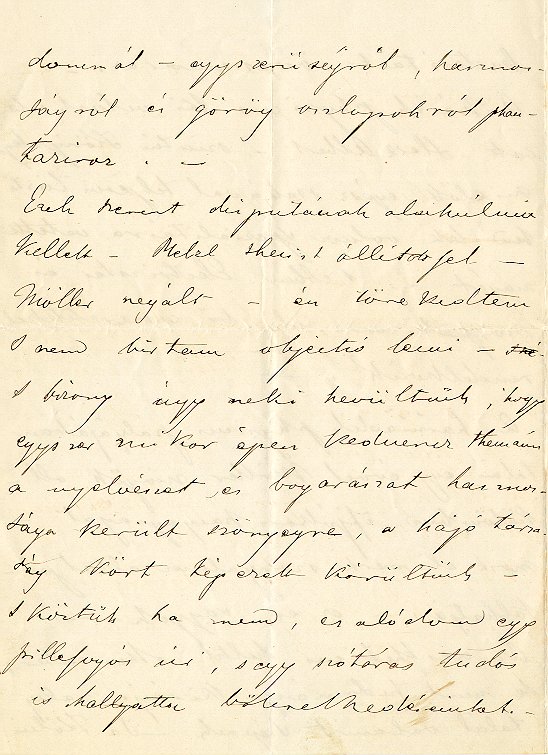 dommál – egyszerűségről, harmos-
ságról és görög oszlopokról phan-
taziroz. –
Ezek szerint disputának alakúlnia
kellett – Meltzl theist állított fel –
Möller negált – én törekedtem
s nem birtam objectiv lenni –
s bizony úgy neki hevűltünk, hogy
egyszer mikor épen kedvencz themám
a nyelvészet és bogarászat harmos-
sága került szőnyegre, a hajó társa-
ság kört képezett körűltünk –
s köztük ha nem csalódom egy
pillefogós úr, s egy szótáras tudós
is hallgatta bölcselkedéseinket. –